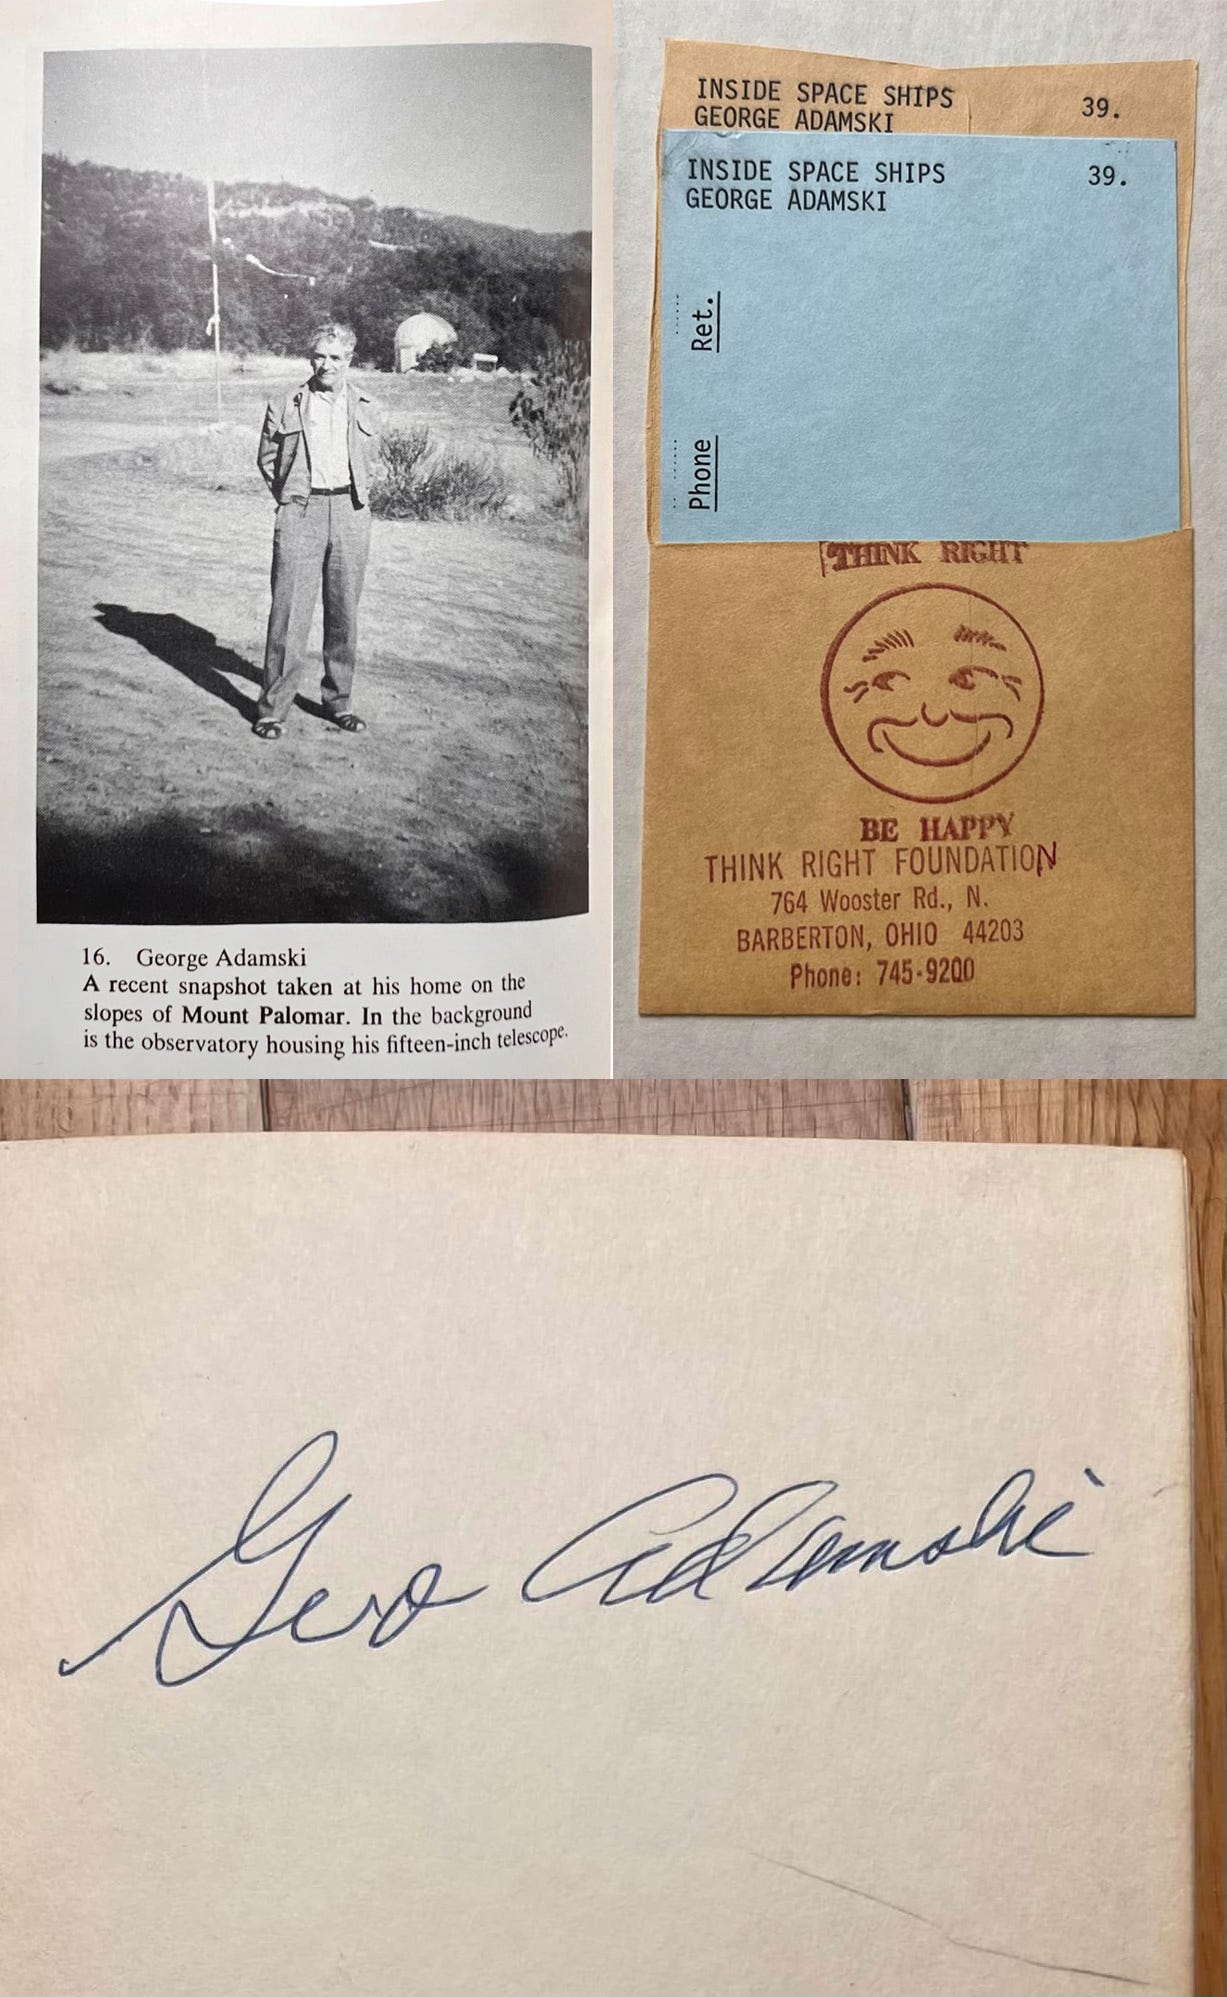 16. George Adamski
A recent snapshot taken at his home on the
slopes of Mount Palomar. In the background
is the observatory housing his fifteen-inch telescope.
INSIDE SPACE SHIPS 39.
GEORGE ADAMSKI
INSIDE SPACE SHIPS 39.
GEORGE ADAMSKI
Ret.
Phone
THINK RIGHT
BE HAPPY
THINK RIGHT FOUNDATION
764 Wooster Rd., N.
BARBERTON, OHIO 44203
Phone: 745-9200
Geo Adamski